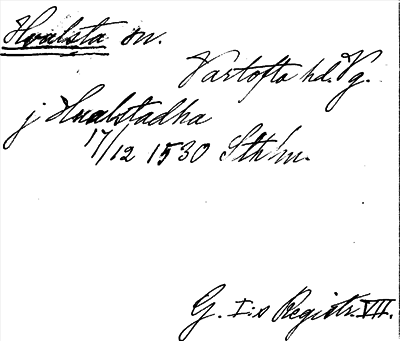 Hvalsta sn.
Vartofta hd. Vg.
j Hualstadha
17/12 1530 Sthlm.
G. I:s Registr. VII.